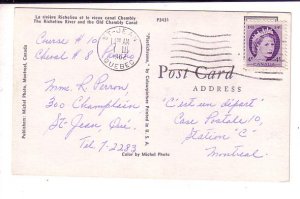 La rivière Richelieu et le vieux canal Chambly
The Richelieu River and the Old Chambly Canal
P3431
Course # 10
Cheval # 8
Mme. R. Perron,
300 Champlain
St-Jean, Qué.
Tel. 7-2283
Color by Michel Photo
Publishers: Michel Photo, Montreal, Canada
by Colourpicture Printed in U. S. A.
ST-JEAN
QUEBEC
Post Card
ADDRESS
"C'est un départ"
Case Postale 10,
Station "C"
Montreal.